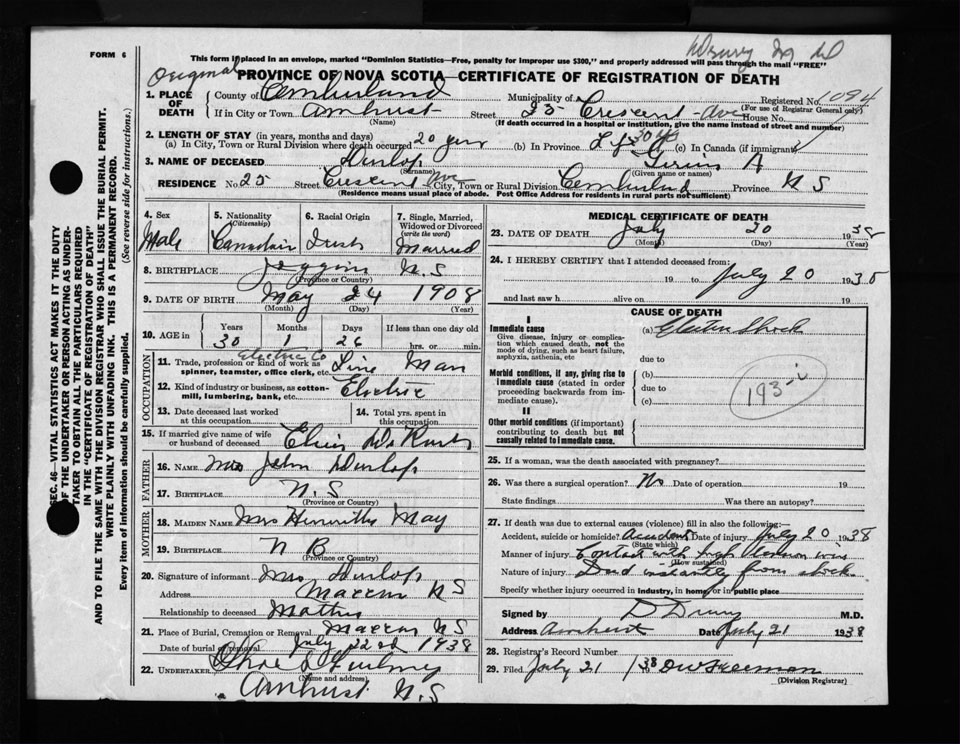 FORM 6
This form if placed in an envelope, marked "Dominion Statistics—Free, penalty for improper use $300," and properly addressed will pass through the mail "FREE"
Original
PROVINCE OF NOVA SCOTIA—CERTIFICATE OF REGISTRATION OF DEATH
1. PLACE OF DEATH
County of Cumberland Municipality of Registered No. 1094
(For use of Registrar General only)
If in City or Town Amherst Street 25 Crescent Ave House No.
(Name) (If death occurred in a hospital or institution, give the name instead of street and number)
2. LENGTH OF STAY (in years, months and days)
(a) In City, Town or Rural Division where death occurred 20 years (b) In Province Life 30 yrs (c) In Canada (if immigrant)
3. NAME OF DECEASED Dunlop A
(Surname) (Given name or names)
RESIDENCE No. 25 Street Crescent Ave City, Town or Rural Division Cumberland Province N S
(Residence means usual place of abode. Post Office Address for residents in rural parts not sufficient)
4. Sex
Male
5. Nationality
(Citizenship)
Canadian
6. Racial Origin
Irish
7. Single, Married, Widowed or Divorced
(write the word)
Married
8. BIRTHPLACE Joggins N.S
(Province or Country)
9. DATE OF BIRTH May 24 1908
(Month) (Day) (Year)
10. AGE in
Years Months Days If less than one day
30 1 26 hrs. or min.
OCCUPATION
Electric Co
11. Trade, profession or kind of work as spinner, teamster, office clerk, etc. Line Man
12. Kind of industry or business, as cotton-mill, lumbering, bank, etc. Electric
13. Date deceased last worked at this occupation
14. Total yrs. spent in this occupation
15. If married give name of wife or husband of deceased
FATHER
16. NAME Mr John Dunlop
17. BIRTHPLACE N.S
(Province or Country)
MOTHER
18. MAIDEN NAME Mrs May
19. BIRTHPLACE N B
(Province or Country)
20. Signature of informant Mrs Dunlop
Address Maccan N S
Relationship to deceased Mother
21. Place of Burial, Cremation or Removal Maccan N S
Date of burial or removal July 22nd 1938
22. UNDERTAKER
(Name and address)
Amherst N.S
MEDICAL CERTIFICATE OF DEATH
23. DATE OF DEATH July 20 1938
(Month) (Day) (Year)
24. I HEREBY CERTIFY that I attended deceased from:
19 to July 20 1938
and last saw h alive on 19
CAUSE OF DEATH
I
Immediate cause
Give disease, injury or complication which caused death, not the mode of dying, such as heart failure, asphyxia, asthenia, etc
(a) Electric Shock
due to
Morbid conditions, if any, giving rise to immediate cause (stated in order proceeding backwards from immediate cause).
(b)
due to
(c)
193
II
Other morbid conditions (if important) contributing to death but not causally related to immediate cause.
25. If a woman, was the death associated with pregnancy?
26. Was there a surgical operation? No Date of operation 19
State findings Was there an autopsy?
27. If death was due to external causes (violence) fill in also the following:
Accident, suicide or homicide? Accident Date of injury July 20 1938
(State which)
Manner of injury Contact with high tension wire
(How sustained)
Nature of injury Died instantly from shock
Specify whether injury occurred in industry, in home, or in public place
Signed by D Drury M.D.
Address Amherst Date July 21 1938
28. Registrar's Record Number
29. Filed July 21 1938
(Division Registrar)
SEC. 46—VITAL STATISTICS ACT MAKES IT THE DUTY
OF THE UNDERTAKER OR PERSON ACTING AS UNDER-
TAKER TO OBTAIN ALL THE PARTICULARS REQUIRED
IN THE "CERTIFICATE OF REGISTRATION OF DEATH"
AND TO FILE THE SAME WITH THE DIVISION REGISTRAR WHO SHALL ISSUE THE BURIAL PERMIT.
WRITE PLAINLY WITH UNFADING INK. THIS IS A PERMANENT RECORD.
Every item of information should be carefully supplied. (See reverse side for instructions.)